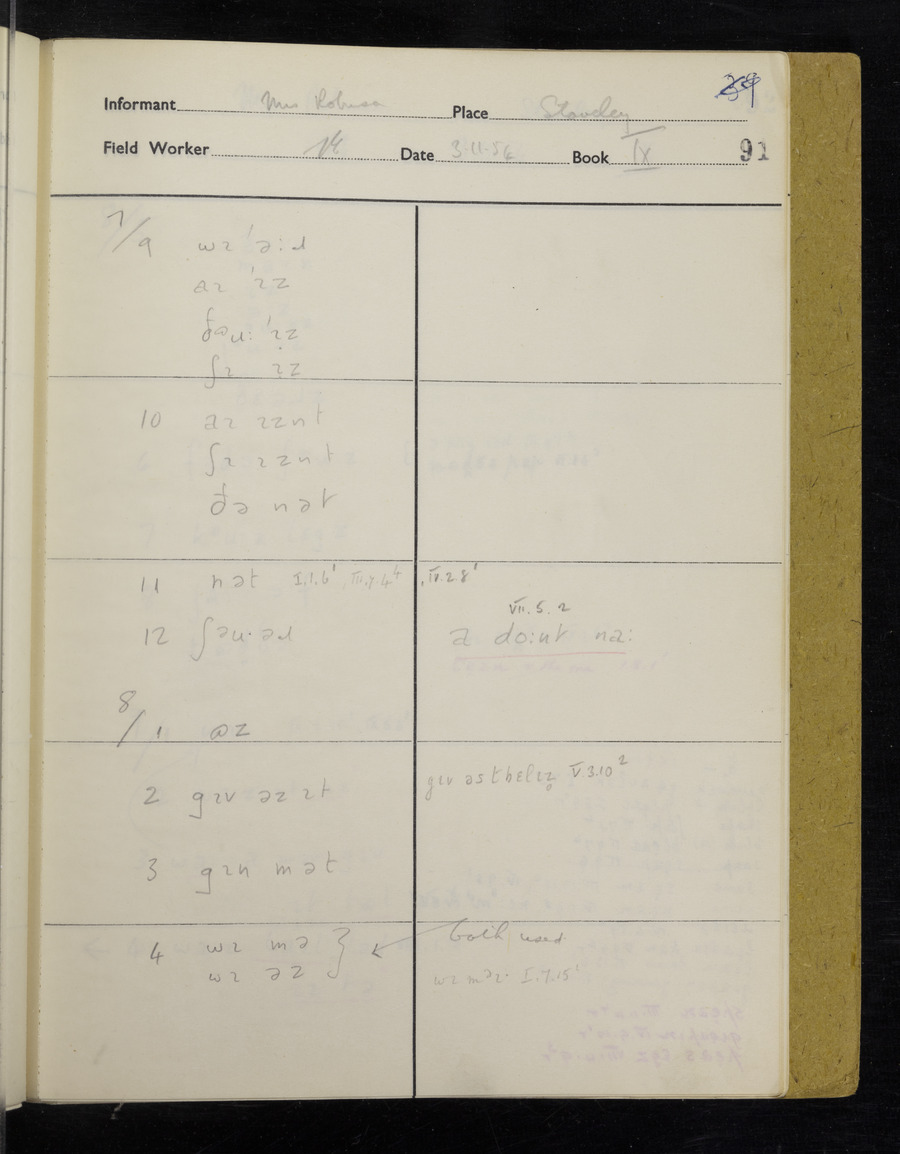 89
Informant Mrs Robinson Place Staveley
Field Worker Date 3.11.56 Book IX 91
7/9 wɪ ˈə:ɹ
aɪ ˈɪz
ðəu: ˈɪz
ʃɪ ɪz
10 aɪ ɪznt
ʃɪ ɪznt
ðə nət
11 nət I.1.6¹, III.7.4⁴, IV.2.8¹
12 ʃəu·əɹ
VII.5.2
a do:nt na:
8/1 əz
2 gɪv əz ɪt
gɪv əs tbɛlɪz̥ V.3.10²
3 gɪn mət
4 wɪ mə } both used
wɪ əz
wɪ məɪ· I.7.15¹